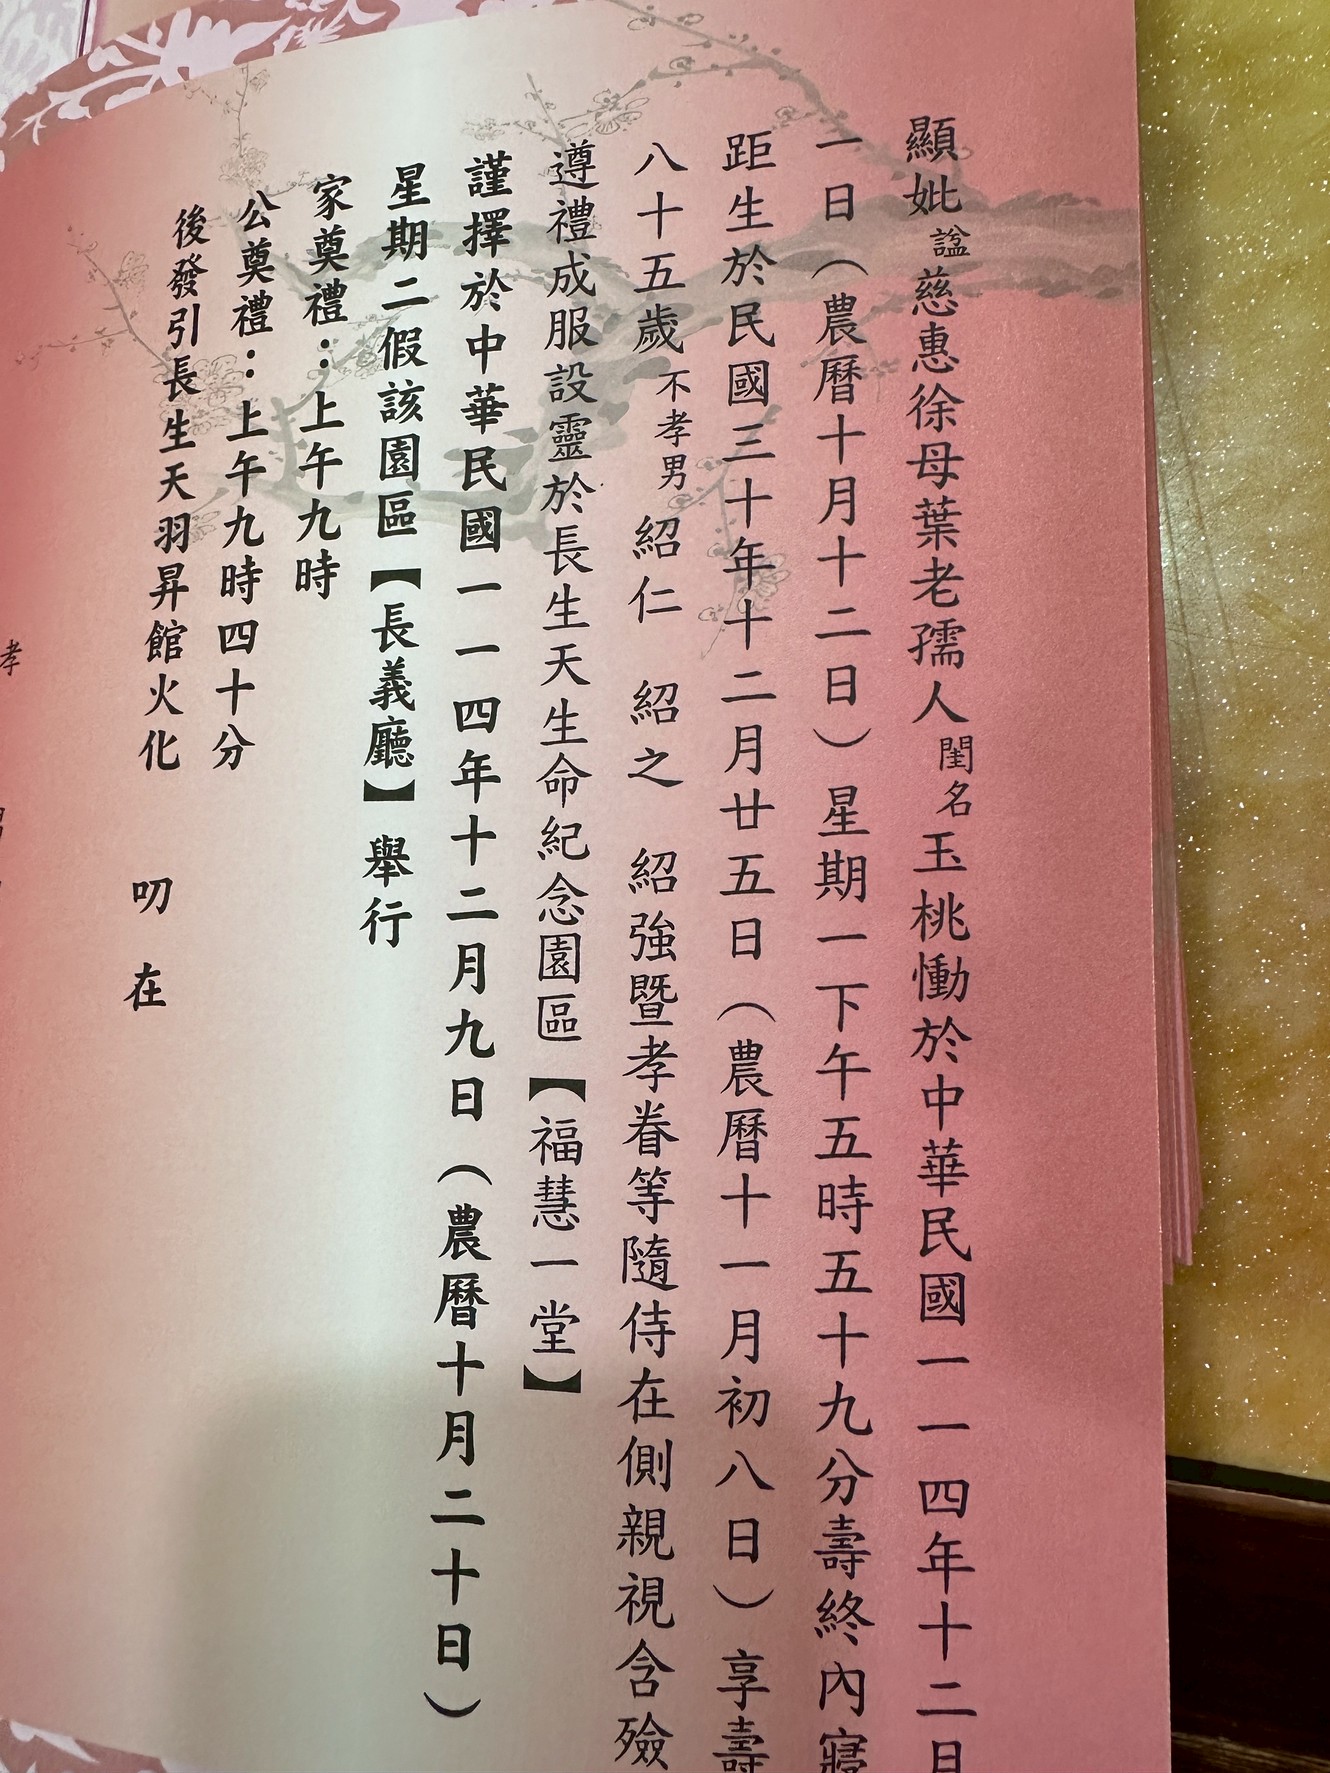 顯妣諡慈惠徐母葉老孺人閨名玉桃慟於中華民國一一四年十二月
一日（農曆十月十二日）星期一下午五時五十九分壽終內寢
距生於民國三十年十二月廿五日（農曆十一月初八日）享壽
八十五歲不孝男紹仁　紹之　紹強暨孝眷等隨侍在側親視含殮
遵禮成服設靈於長生天生命紀念園區【福慧一堂】
謹擇於中華民國一一四年十二月九日（農曆十月二十日）
星期二假該園區【長義廳】舉行
家奠禮：上午九時
公奠禮：上午九時四十分
後發引長生天羽昇館火化
叨在
孝